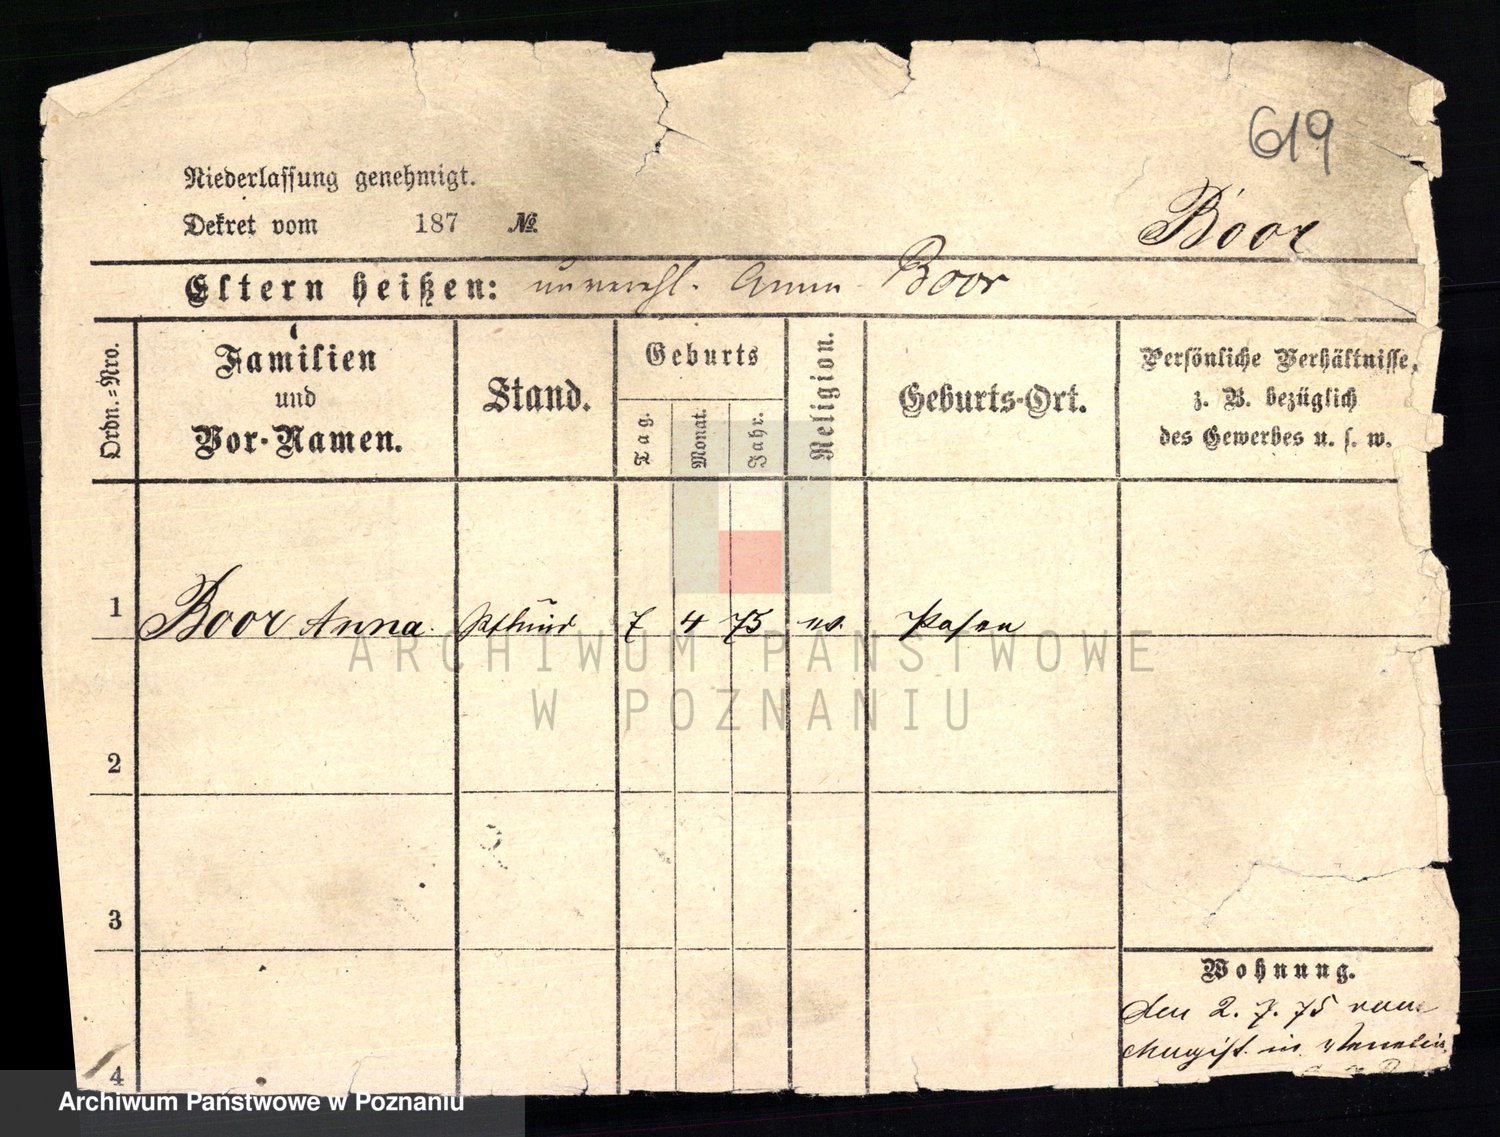 619
Niederlassung genehmigt.
Dekret vom 187 №
Boor
Eltern heißen: unverehl. Anna Boor
Ordn.-Nro.
Familien und Vor-Namen.
Stand.
Geburts
Tag.
Monat.
Jahr.
Religion.
Geburts-Ort.
Persönliche Verhältnisse,
z. B. bezüglich
des Gewerbes u. s. w.
1 Boor Anna. 7 4 75 ev. Posen
ARCHIWUM PAŃSTWOWE
W POZNANIU
2
3
Wohnung.
den 2. 7. 75 vom
Magist. in
4
Archiwum Państwowe w Poznaniu